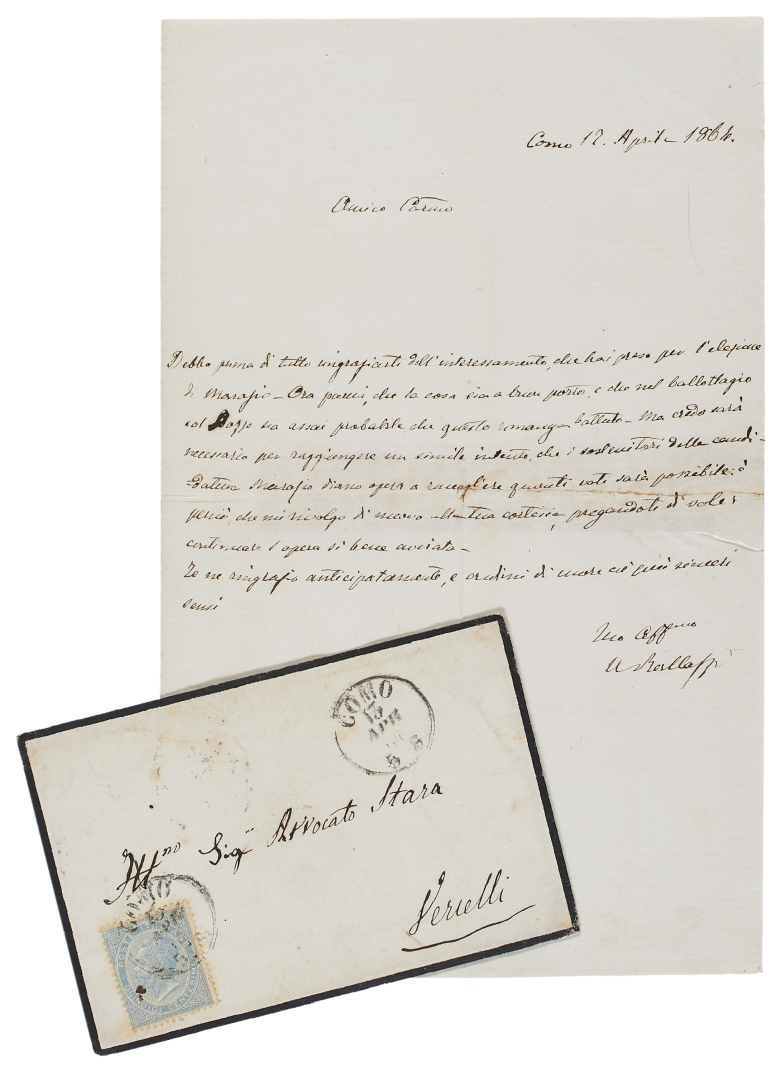 Como 12. Aprile 1864.
Amico Carmo
Debbo prima di tutto ringraziarti dell'interessamento, che hai preso per l'elezione
di Marazio - Ora parmi, che la cosa sia a buon porto, e che nel ballottagio
col sia assai probabile che questo romanga battuto - Ma credo sarà
necessario per raggiungere un simile intento, che i sostenitori della candi-
datura Marazio diano opera a raccogliere quanti voti sarà possibile: è
perciò, che mi rivolgo di nuovo alla tua cortesia, pregandoti di voler
continuare l'opera sì bene avviata -
Te ne ringrazio anticipatamente, e credimi di cuore coi più sinceri
sensi
tuo Aff.mo
COMO
13
APR
64
Ill.no Sig.r Avvocato Stara
Vercelli
COMO
QUINDICI CENTESIMI